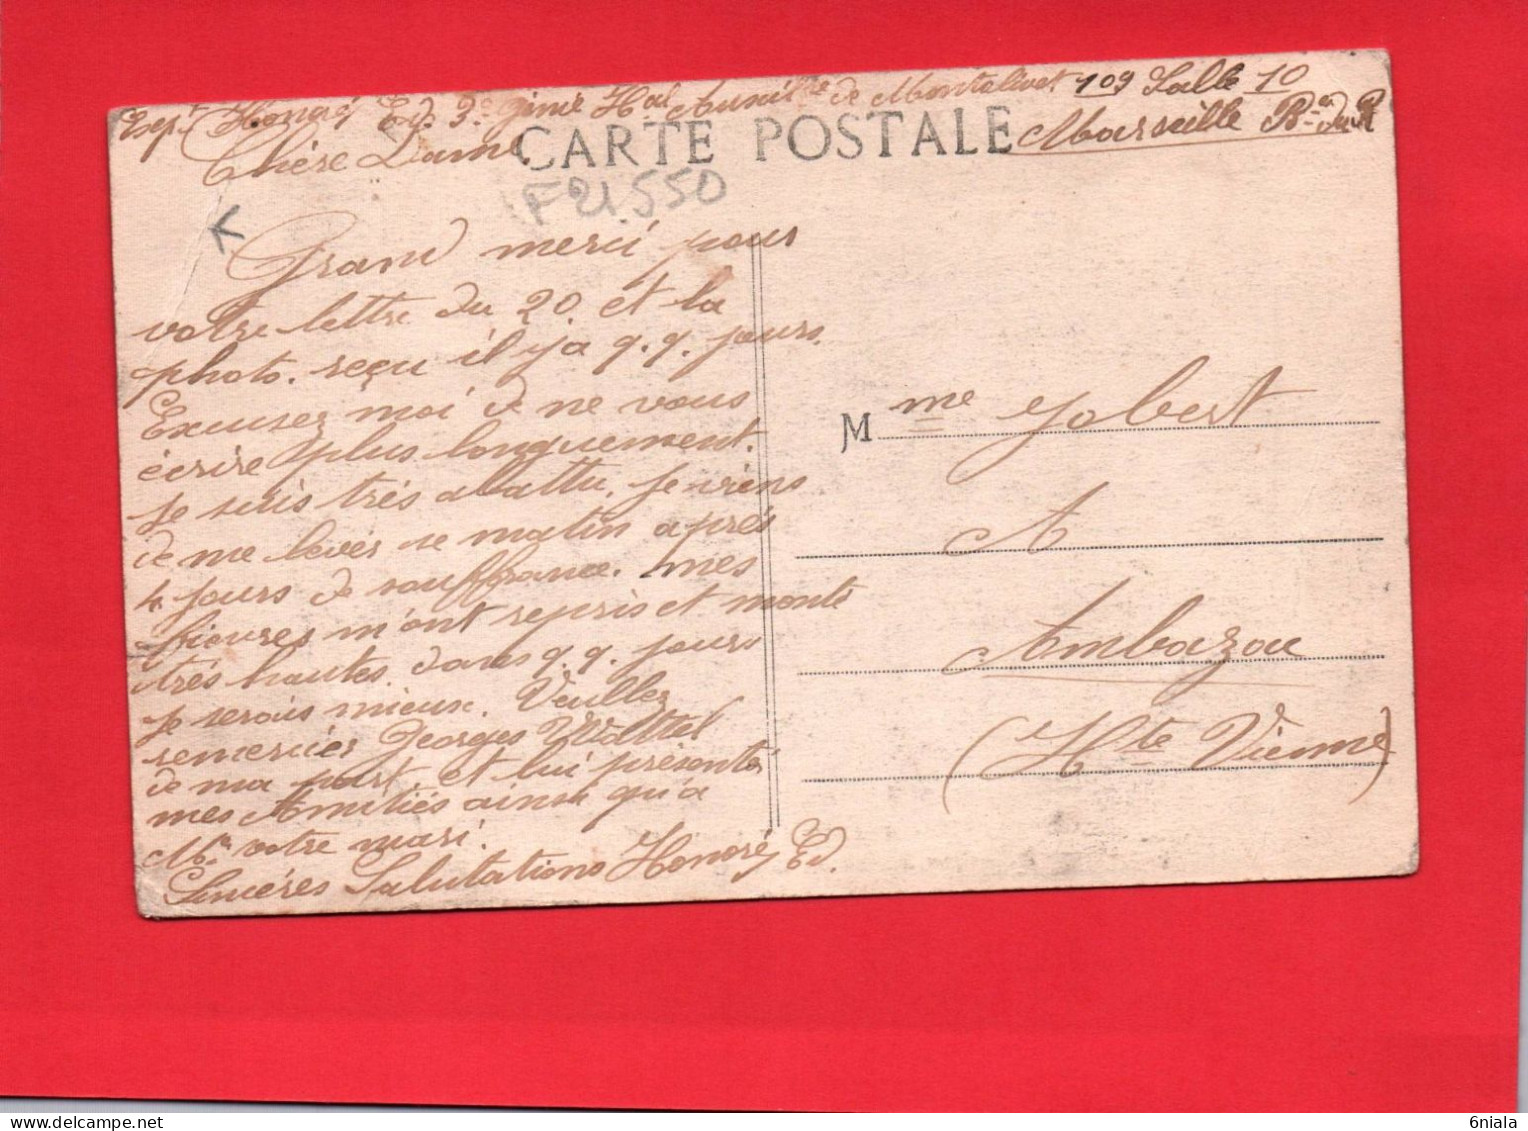 Exp. Honoré Ed. 3e génie Hal Auxilre de Montolivet 109 Salle 10
Marseille B. du R
Chère Dame
CARTE POSTALE
F21550
Grand merci pour
votre lettre du 20. et la
photo. reçu il y a q.q. jours.
Excusez moi de ne vous
écrire plus longuement.
Je suis très abattu. Je viens
de me lever ce matin après
4 jours de souffrance. mes
fièvres m'ont repris et monte
très hautes. dans q.q. jours
je serais mieux. Veuillez
remercier Georges
de ma part, et lui présenter
mes Amitiés ainsi qu'à
Mr. votre mari.
Sincères Salutations Honoré Ed.
Mme Jobert
A
Ambazac
(Hte Vienne)
6niala